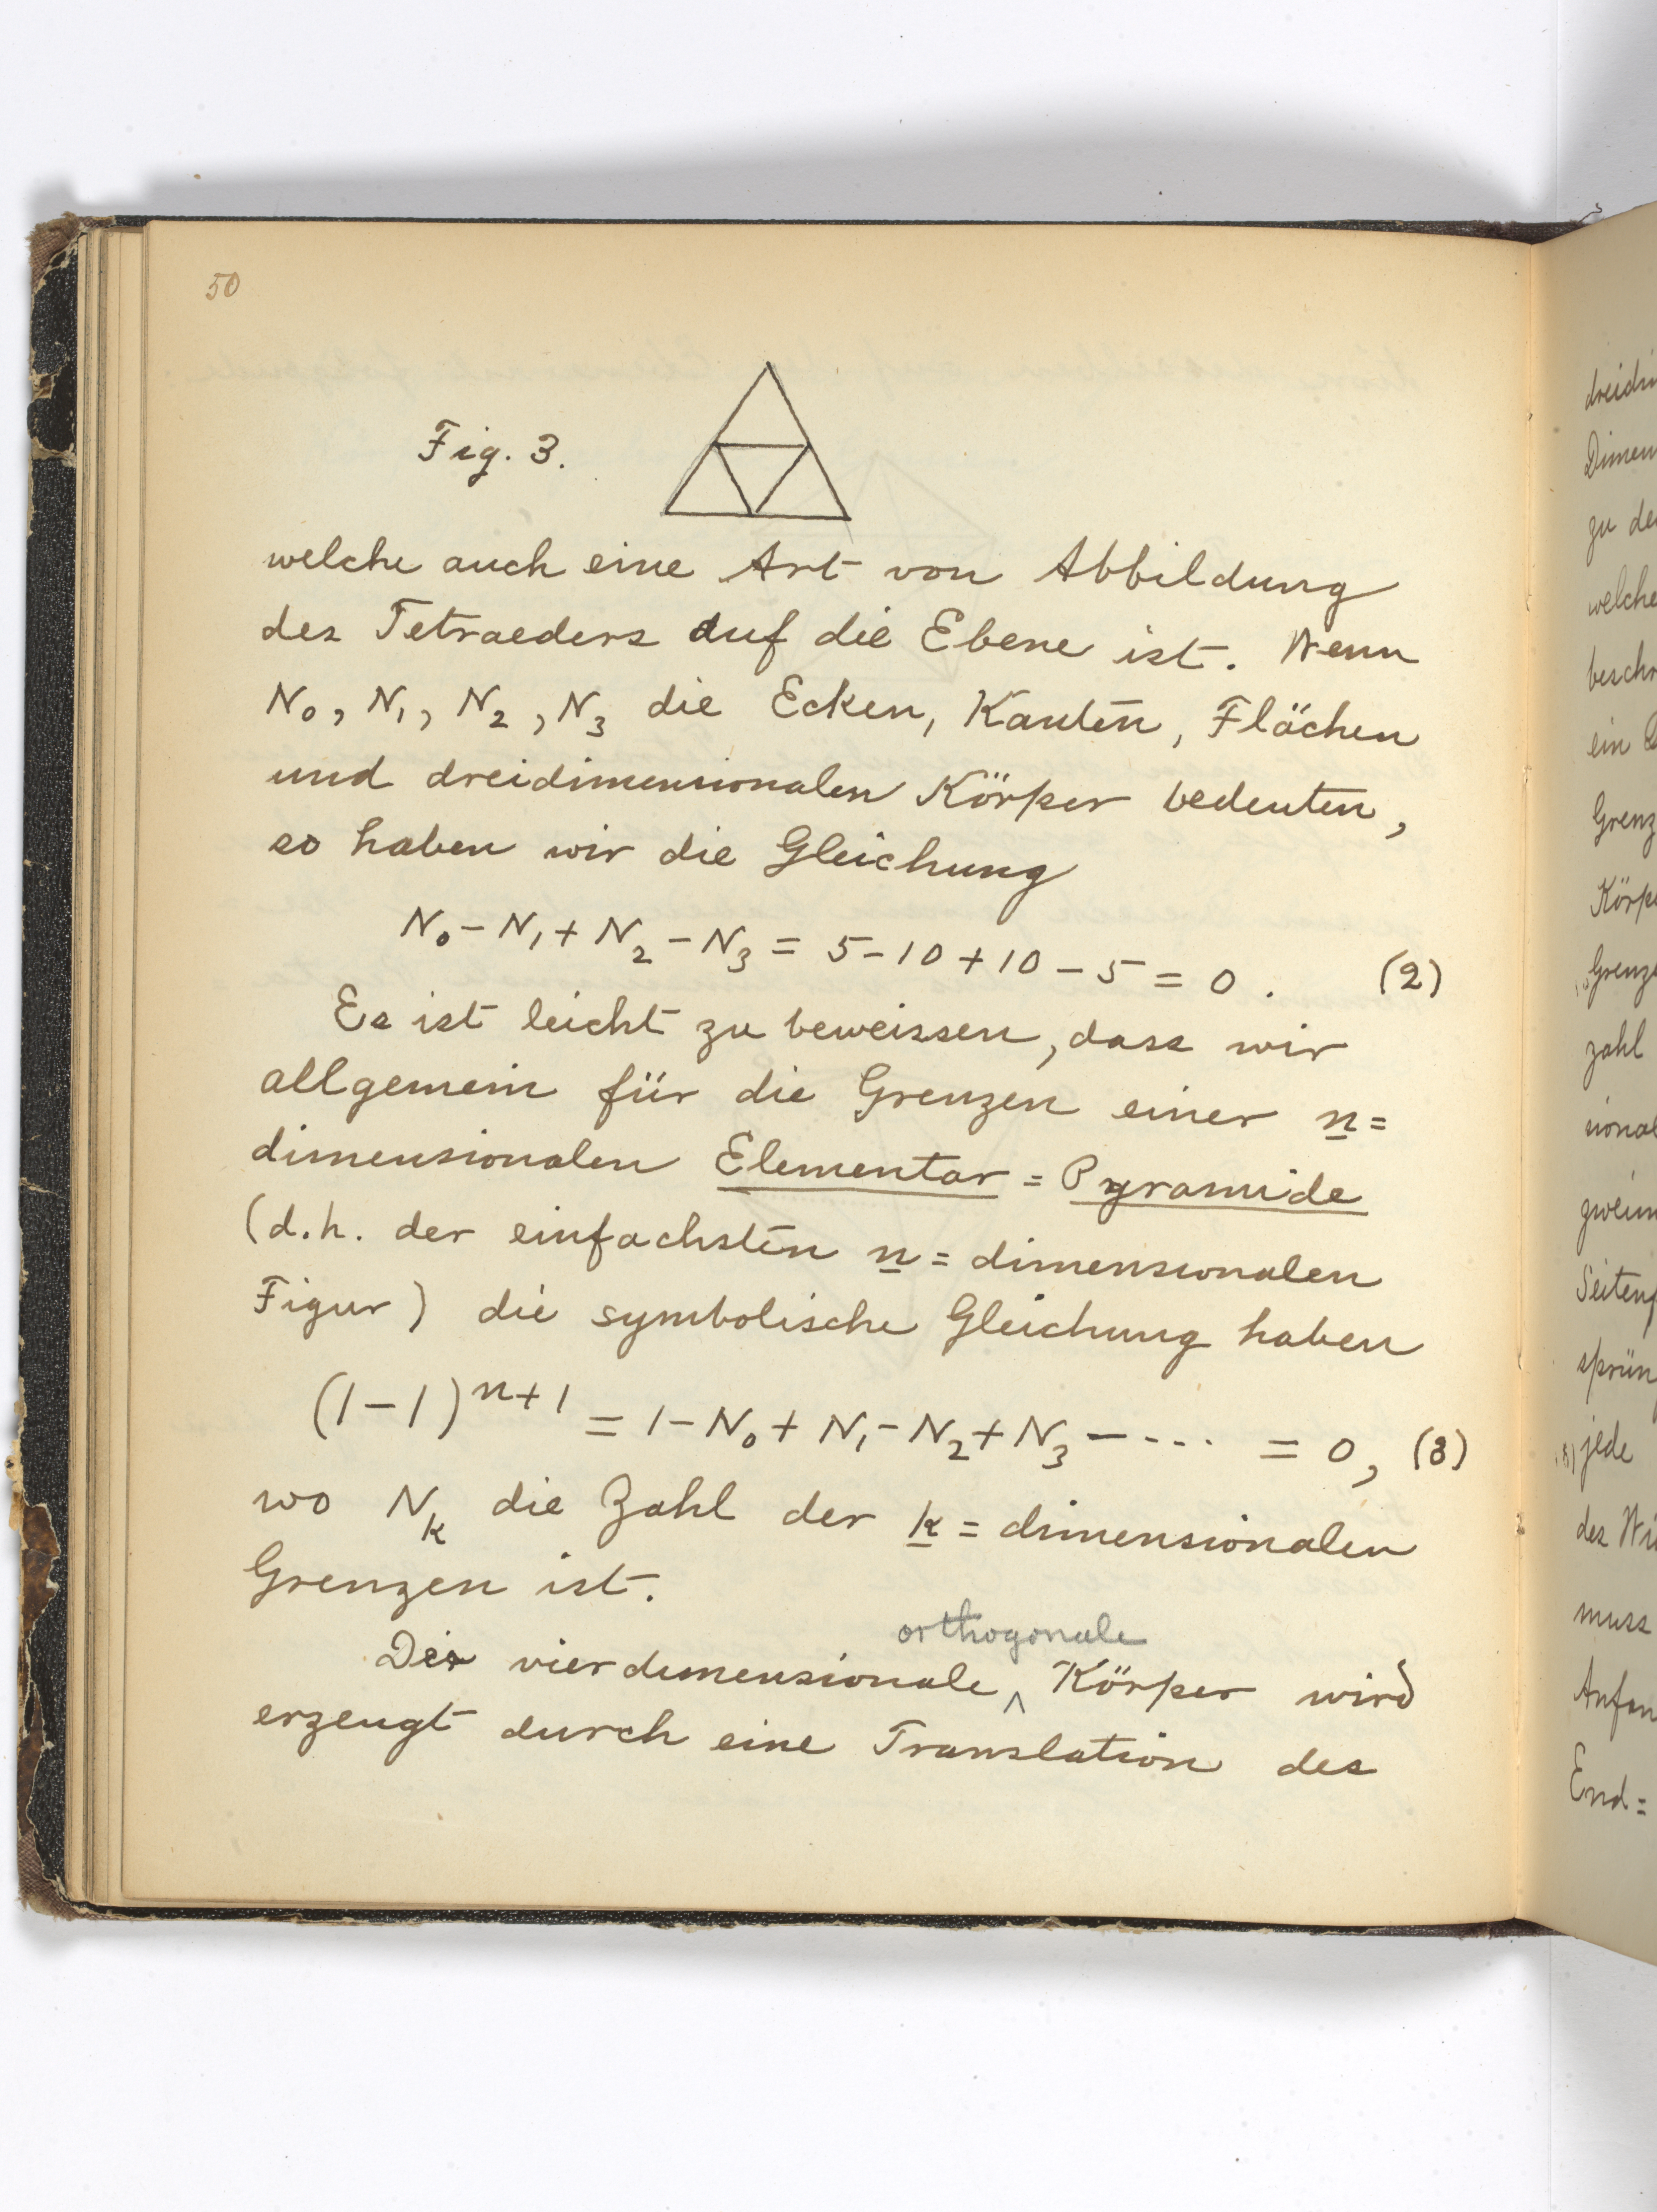 50
Fig. 3.
welche auch eine Art von Abbildung
des Tetraeders auf die Ebene ist. Wenn
N₀, N₁, N₂, N₃ die Ecken, Kanten, Flächen
und dreidimensionalen Körper bedeuten,
so haben wir die Gleichung
N₀ - N₁ + N₂ - N₃ = 5 - 10 + 10 - 5 = 0. (2)
Es ist leicht zu beweissen, dass wir
allgemein für die Grenzen einer n=
dimensionalen Elementar = Pyramide
(d.h. der einfachsten n = dimensionalen
Figur) die symbolische Gleichung haben
(1-1)ⁿ⁺¹ = 1 - N₀ + N₁ - N₂ + N₃ - ···· = 0, (3)
wo Nₖ die Zahl der k = dimensionalen
Grenzen ist.
orthogonale
Der vierdimensionale ^ Körper wird
erzeugt durch eine Translation des
dreidim
Dimen
zu de
welche
besch
ein
Grenz
Körp
Grenz
zahl
sional
zweim
Seiten
sprün
jede
des Wü
muss
Anfan
End=